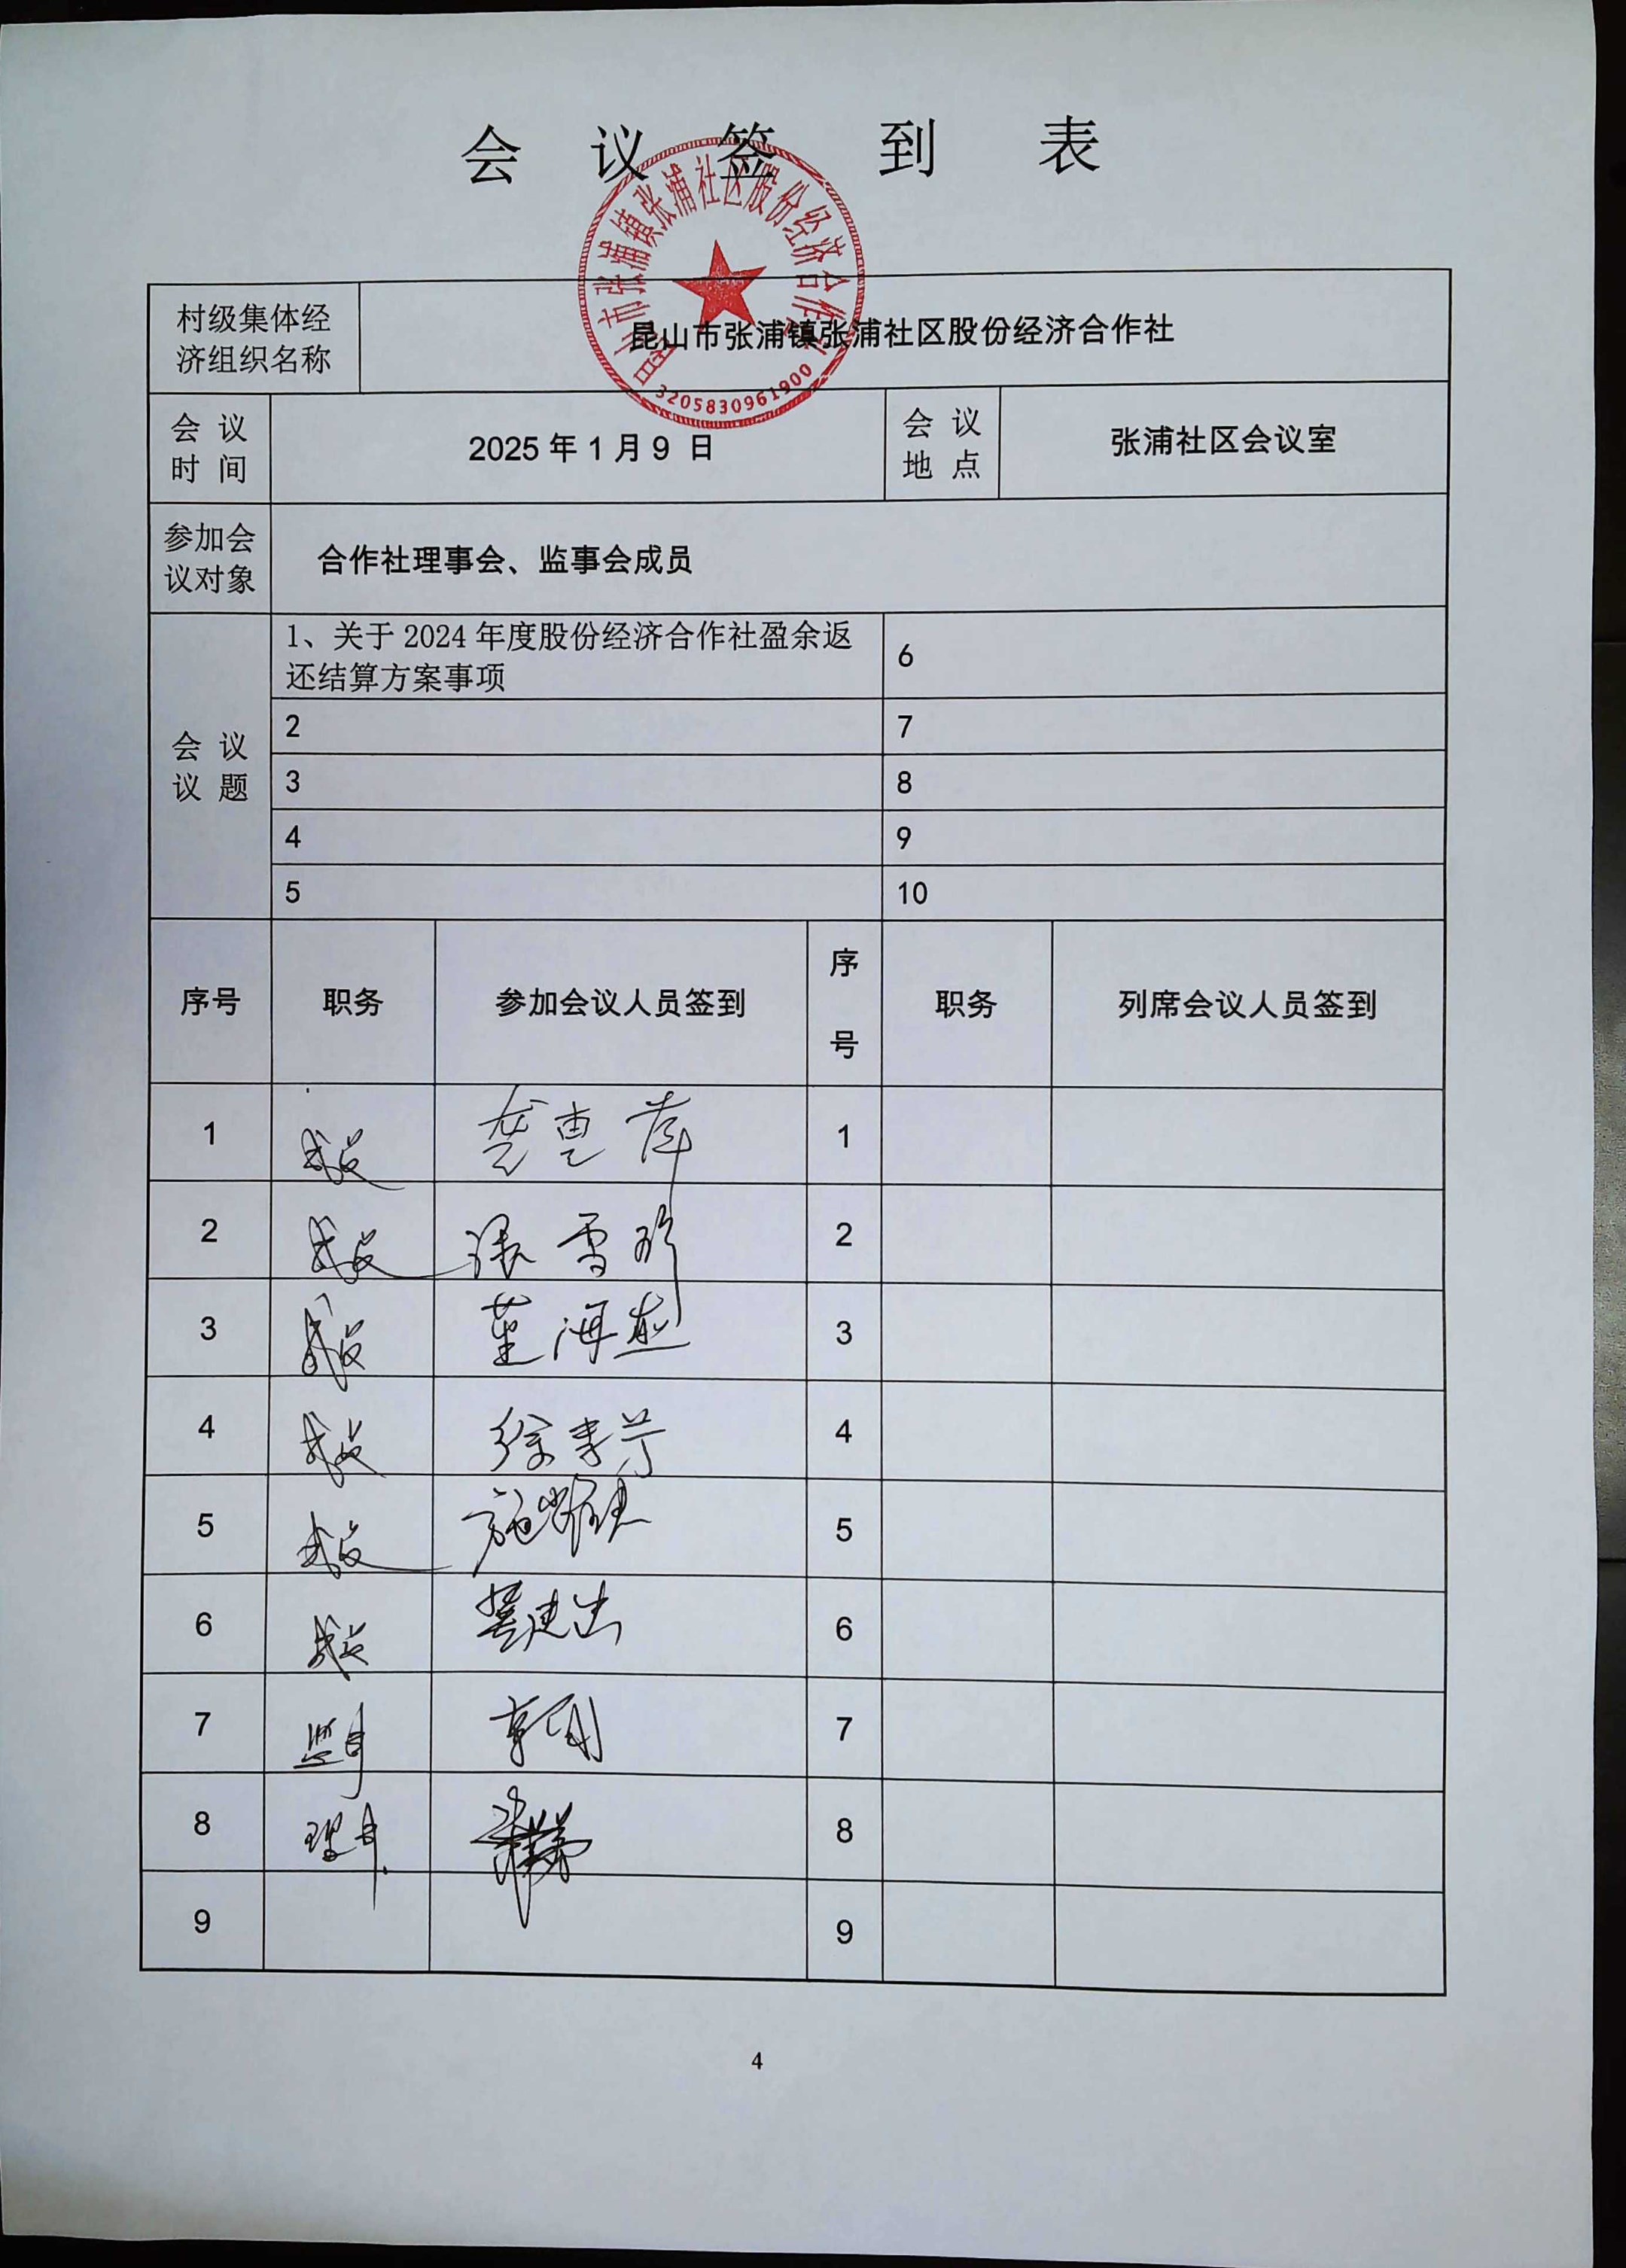 会议签到表
昆山市张浦镇张浦社区股份经济合作社
3205830961900
村级集体经
济组织名称
昆山市张浦镇张浦社区股份经济合作社
会议
时间
2025年1月9日
会议
地点
张浦社区会议室
参加会
议对象
合作社理事会、监事会成员
会议
议题
1、关于2024年度股份经济合作社盈余返
还结算方案事项
6
2
7
3
8
4
9
5
10
序号
职务
参加会议人员签到
序
号
职务
列席会议人员签到
1
成员
龚惠萍
1
2
成员
张雪珍
2
3
成员
董海燕
3
4
成员
徐青芳
4
5
成员
5
6
成员
6
7
7
8
8
9
9
4